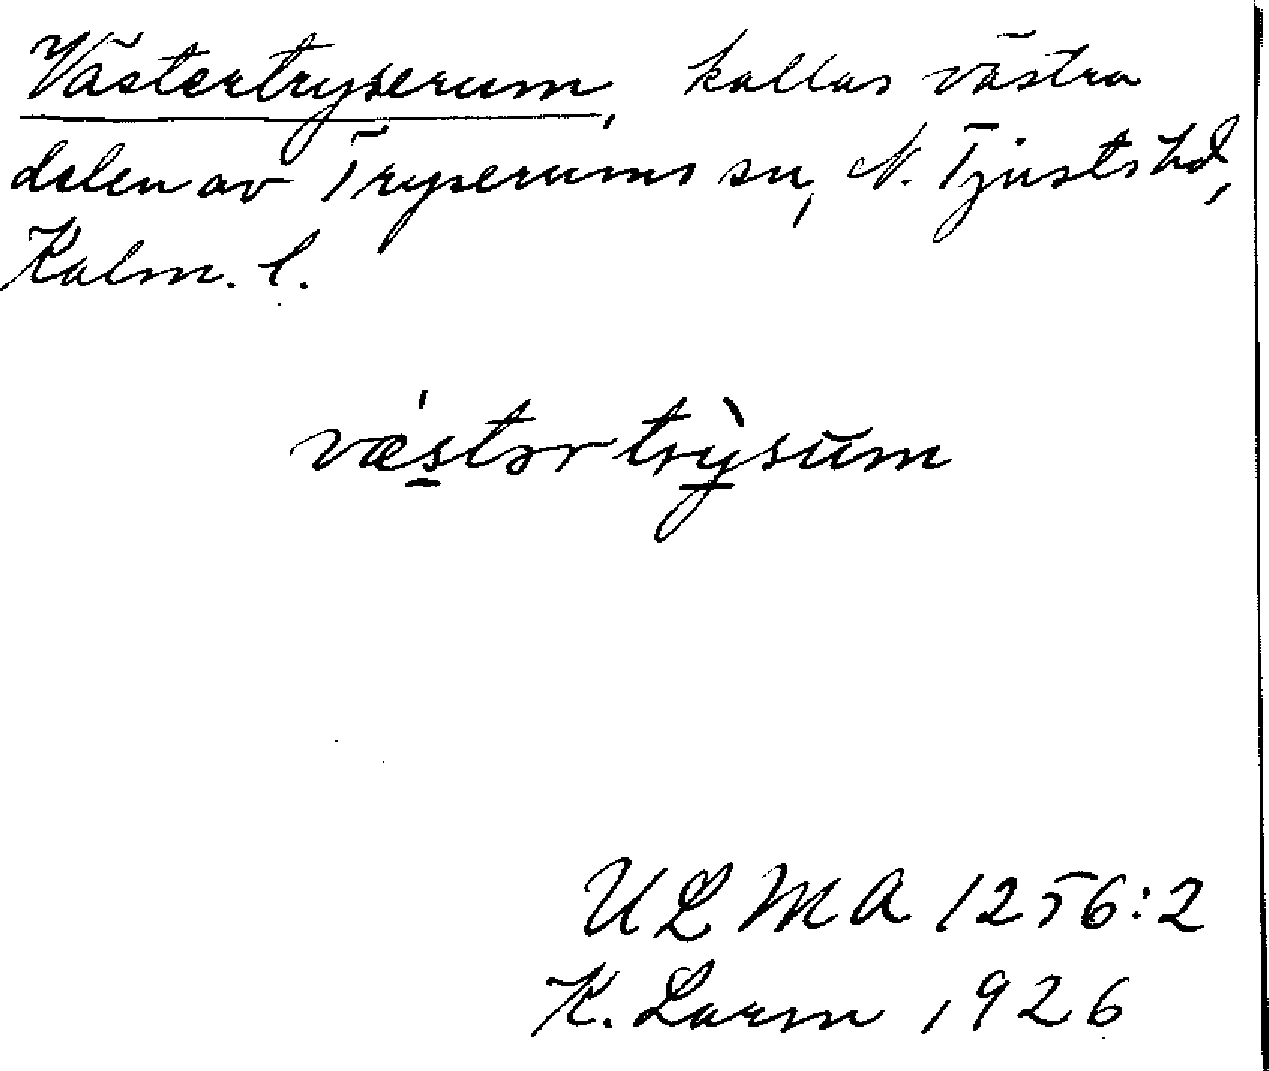 Västertryserum, kallas västra
delen av Tryserums sn, N. Tjusts hd,
Kalm. l.
væ̀stərtrỳ̱sum
ULMA 1256:2
K. Larm 1926